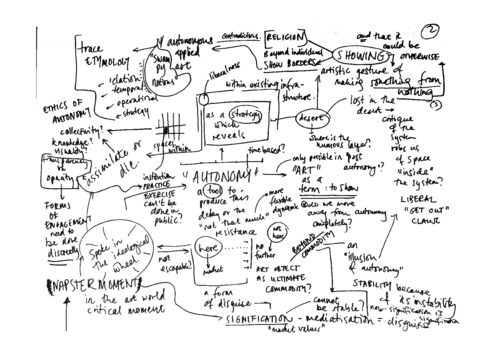 2
trace
ETYMOLOGY
relational
temporal
operational
strategy
autonomous
applied
art
swampy
notions
contradictions
RELIGION
Beyond individual
SHOW BORDERS
and that it
could be
SHOWING
OTHERWISE
artistic gesture of
making something from
nothing
liberalness
within existing infra-
structure
as a strategy
which
reveals
desert
lost in the
desert
critique
of the
system
robs us
of space
"inside"
the system?
ETHICS OF
AUTONOMY?
collectivity?
knowledge?
visuality?
transparency vs
opacity
assimilate or
die.
spaces
within
time based?
where is the
humous layer?
only possible in post
"ART" autonomy?
as a
term: to show
"AUTONOMY"
intention
PRACTICE
EXERCISE
can't be
done in
public?
a tool to
produce this
delay on the
"not that much"
resistance
more
flexible
dynamic
we move
away from autonomy
completely?
LIBERAL
"GET OUT"
CLAUSE
FORMS
OF
ENGAGEMENT?
need to
be done
discreetly
Spoke in
the ideological
wheel
not
escapable?
here
market
no
further
BEYOND
COMMODITY
an
"illusion
of autonomy"
ART OBJECT
AS ULTIMATE
COMMODITY?
STABILITY because
of its instability
NAPSTER MOMENT
in the art world
critical moment
a form
of disguise
cannot
be stable?
non-signification is
signification
SIGNIFICATION - mediatisation = disguise
"market values"